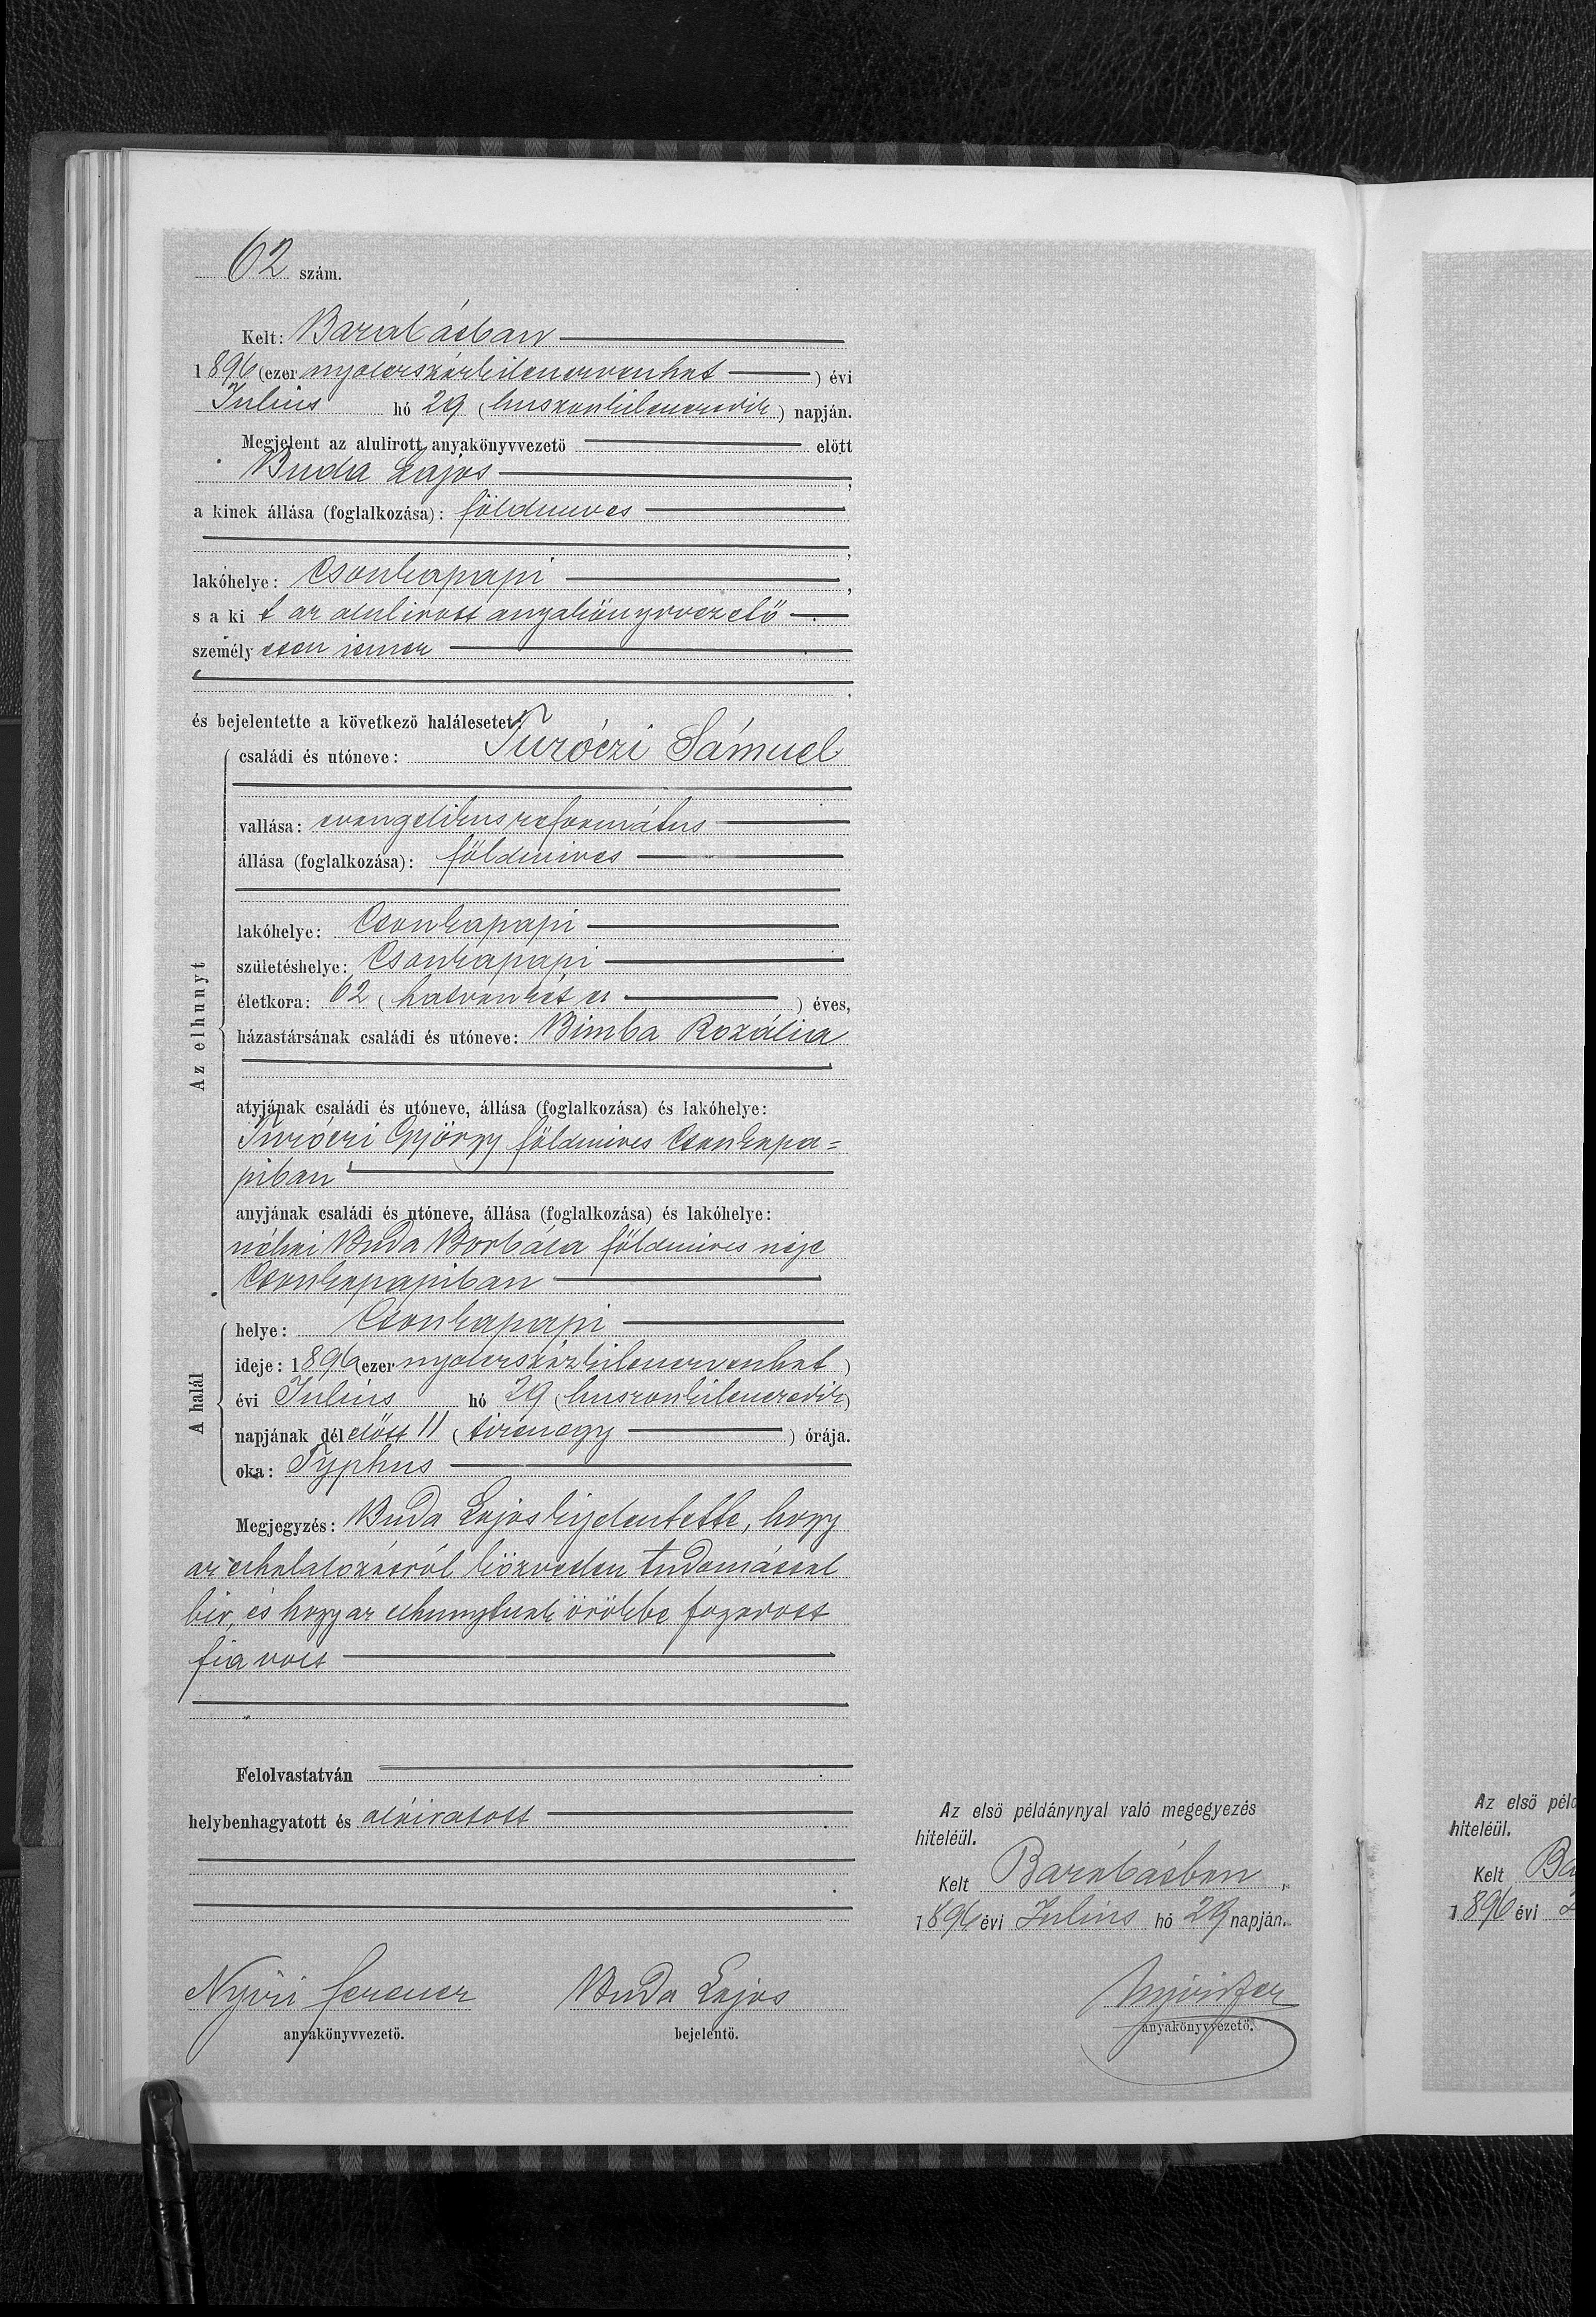 62 szám.
Kelt: Barabásban
1896 (ezer nyolczszázkilenczvenhat) évi
Julius hó 29 (huszonkilenczedik) napján.
Megjelent az alulirott anyakönyvvezető előtt
Buda Lajos,
a kinek állása (foglalkozása): földmives
,
lakóhelye: Csonkapapi,
s a ki t az alulirott anyakönyvvezető
személy esen ismer
.
és bejelentette a következő halálesetet:
Az elhunyt
családi és utóneve: Turóczi Sámuel
vallása: evangelikus református
állása (foglalkozása): földmives
lakóhelye: Csonkapapi
születéshelye: Csonkapapi
életkora: 62 (hatvankét) éves,
házastársának családi és utóneve: Bimba Rozália
atyjának családi és utóneve, állása (foglalkozása) és lakóhelye:
Turóczi György földmives Csonkapa=
piban
anyjának családi és utóneve, állása (foglalkozása) és lakóhelye:
néhai Buda Borbála földmives neje
Csonkapapiban
A halál
helye: Csonkapapi
ideje: 1896 (ezer nyolczszázkilenczvenhat)
évi Julius hó 29 (huszonkilenczedik)
napjának dél előtt 11 (tizenegy) órája.
oka: Typhus
Megjegyzés: Buda Lajos kijelentette, hogy
az elhalálozásról közvetlen tudomással
bir, és hogy az elhunytnak örökbe fogadott
fia volt
Felolvastatván
helybenhagyatott és aláiratott
Nyiri Ferencz
anyakönyvvezető.
Buda Lajos
bejelentő.
Az első példánynyal való megegyezés
hiteléül.
Kelt Barabásban,
1896 évi Julius hó 29 napján.
Nyiri Fer
anyakönyvvezető.
Az első péld
hiteléül.
Kelt Ba
1896 évi